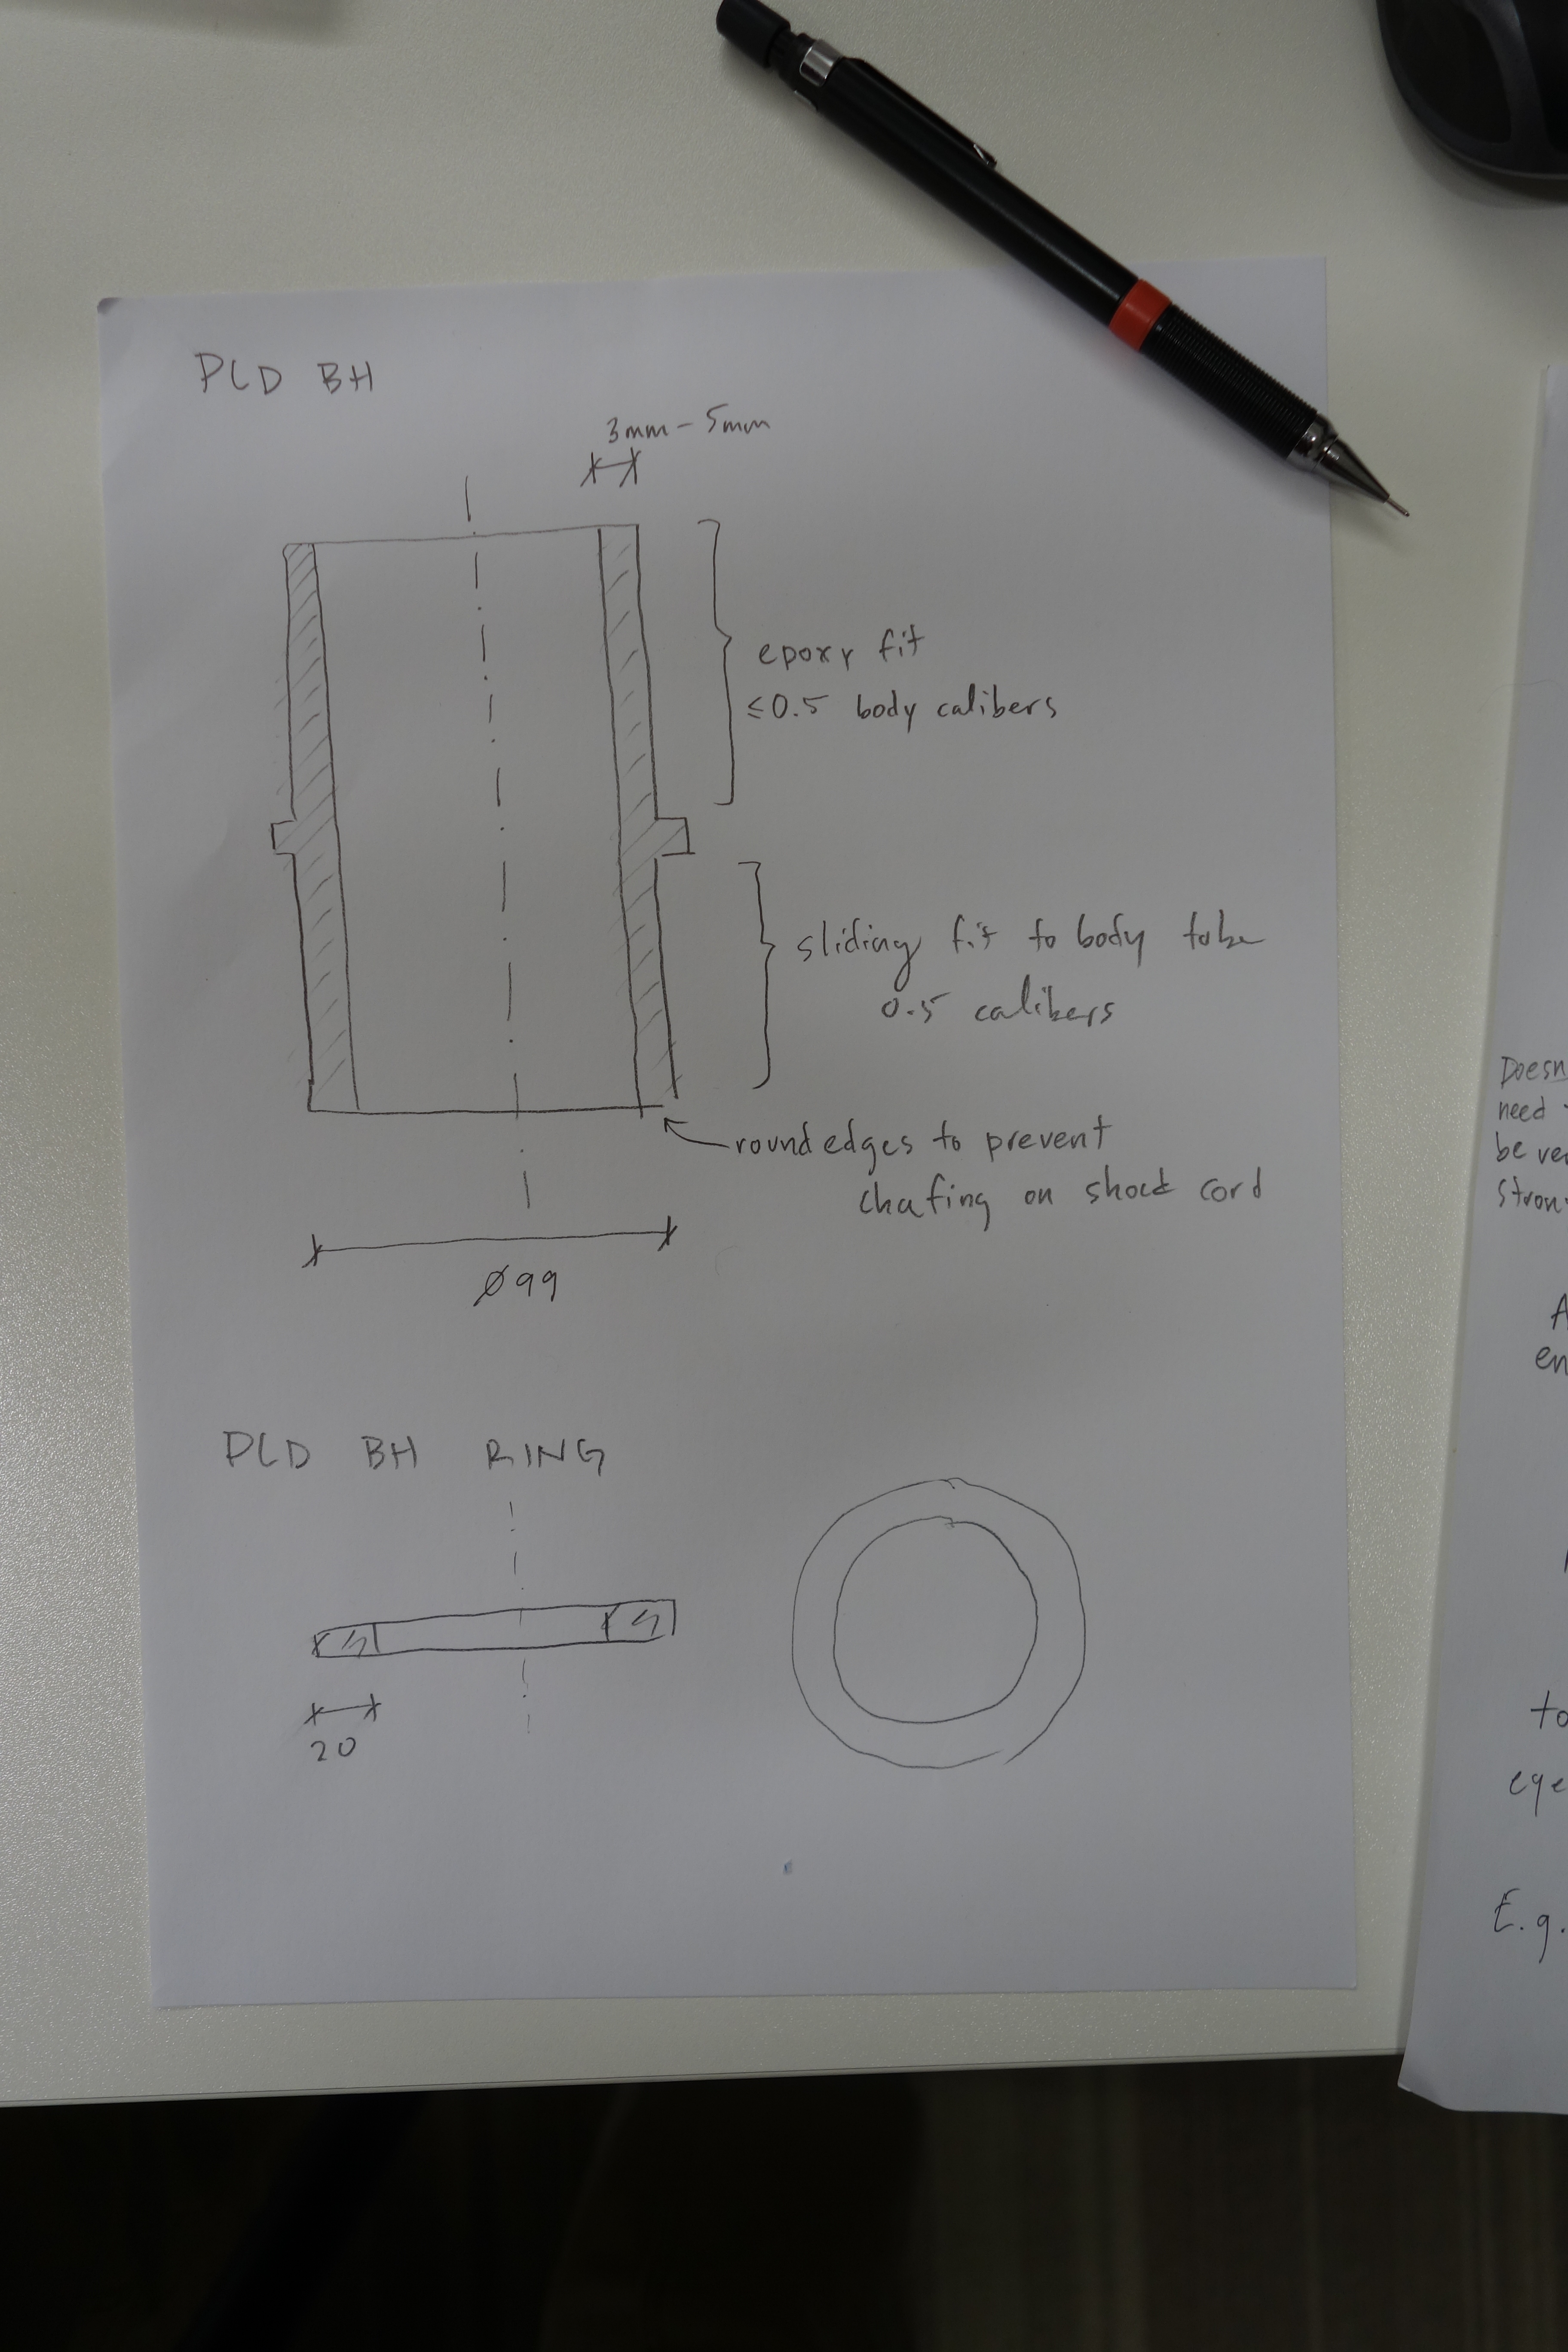 PLD BH
3mm - 5mm
epoxy fit
≤0.5 body calibers
sliding fit to body tube
0.5 calibers
round edges to prevent
chafing on shock cord
Ø99
PLD BH RING
20
Doesn
need
be ve
stron
A
en
to
eye
E.g.